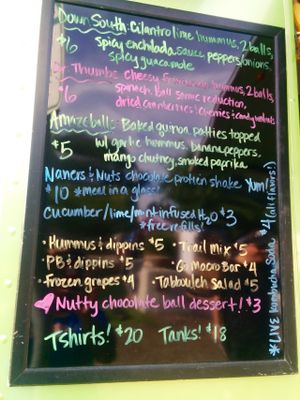 Down South: Cilantro lime hummus, 2 balls,
$6 spicy enchilada sauce, peppers, onions,
spicy guacamole
Dr. Thumbs: Cheesy hummus, 2 balls,
$6 spinach, balsamic reduction,
dried cranberries/cherries & candy walnuts
Amazeballs: Baked quinoa patties topped
$5 w/ garlic hummus, banana peppers,
mango chutney, smoked paprika
Naners & Nuts chocolate protein shake Yum!
$10 *meal in a glass!
Cucumber/lime/mint infused H2O $3
*free refills!
• Hummus & dippins $5 • Trail mix $5
• PB & dippins $5 • GoMacro Bar $4
• frozen grapes $4 • Tabbouleh salad $5
Nutty chocolate ball dessert! $3
Tshirts! $20 Tanks! $18
*LIVE kombucha soda $4 (all flavors!)